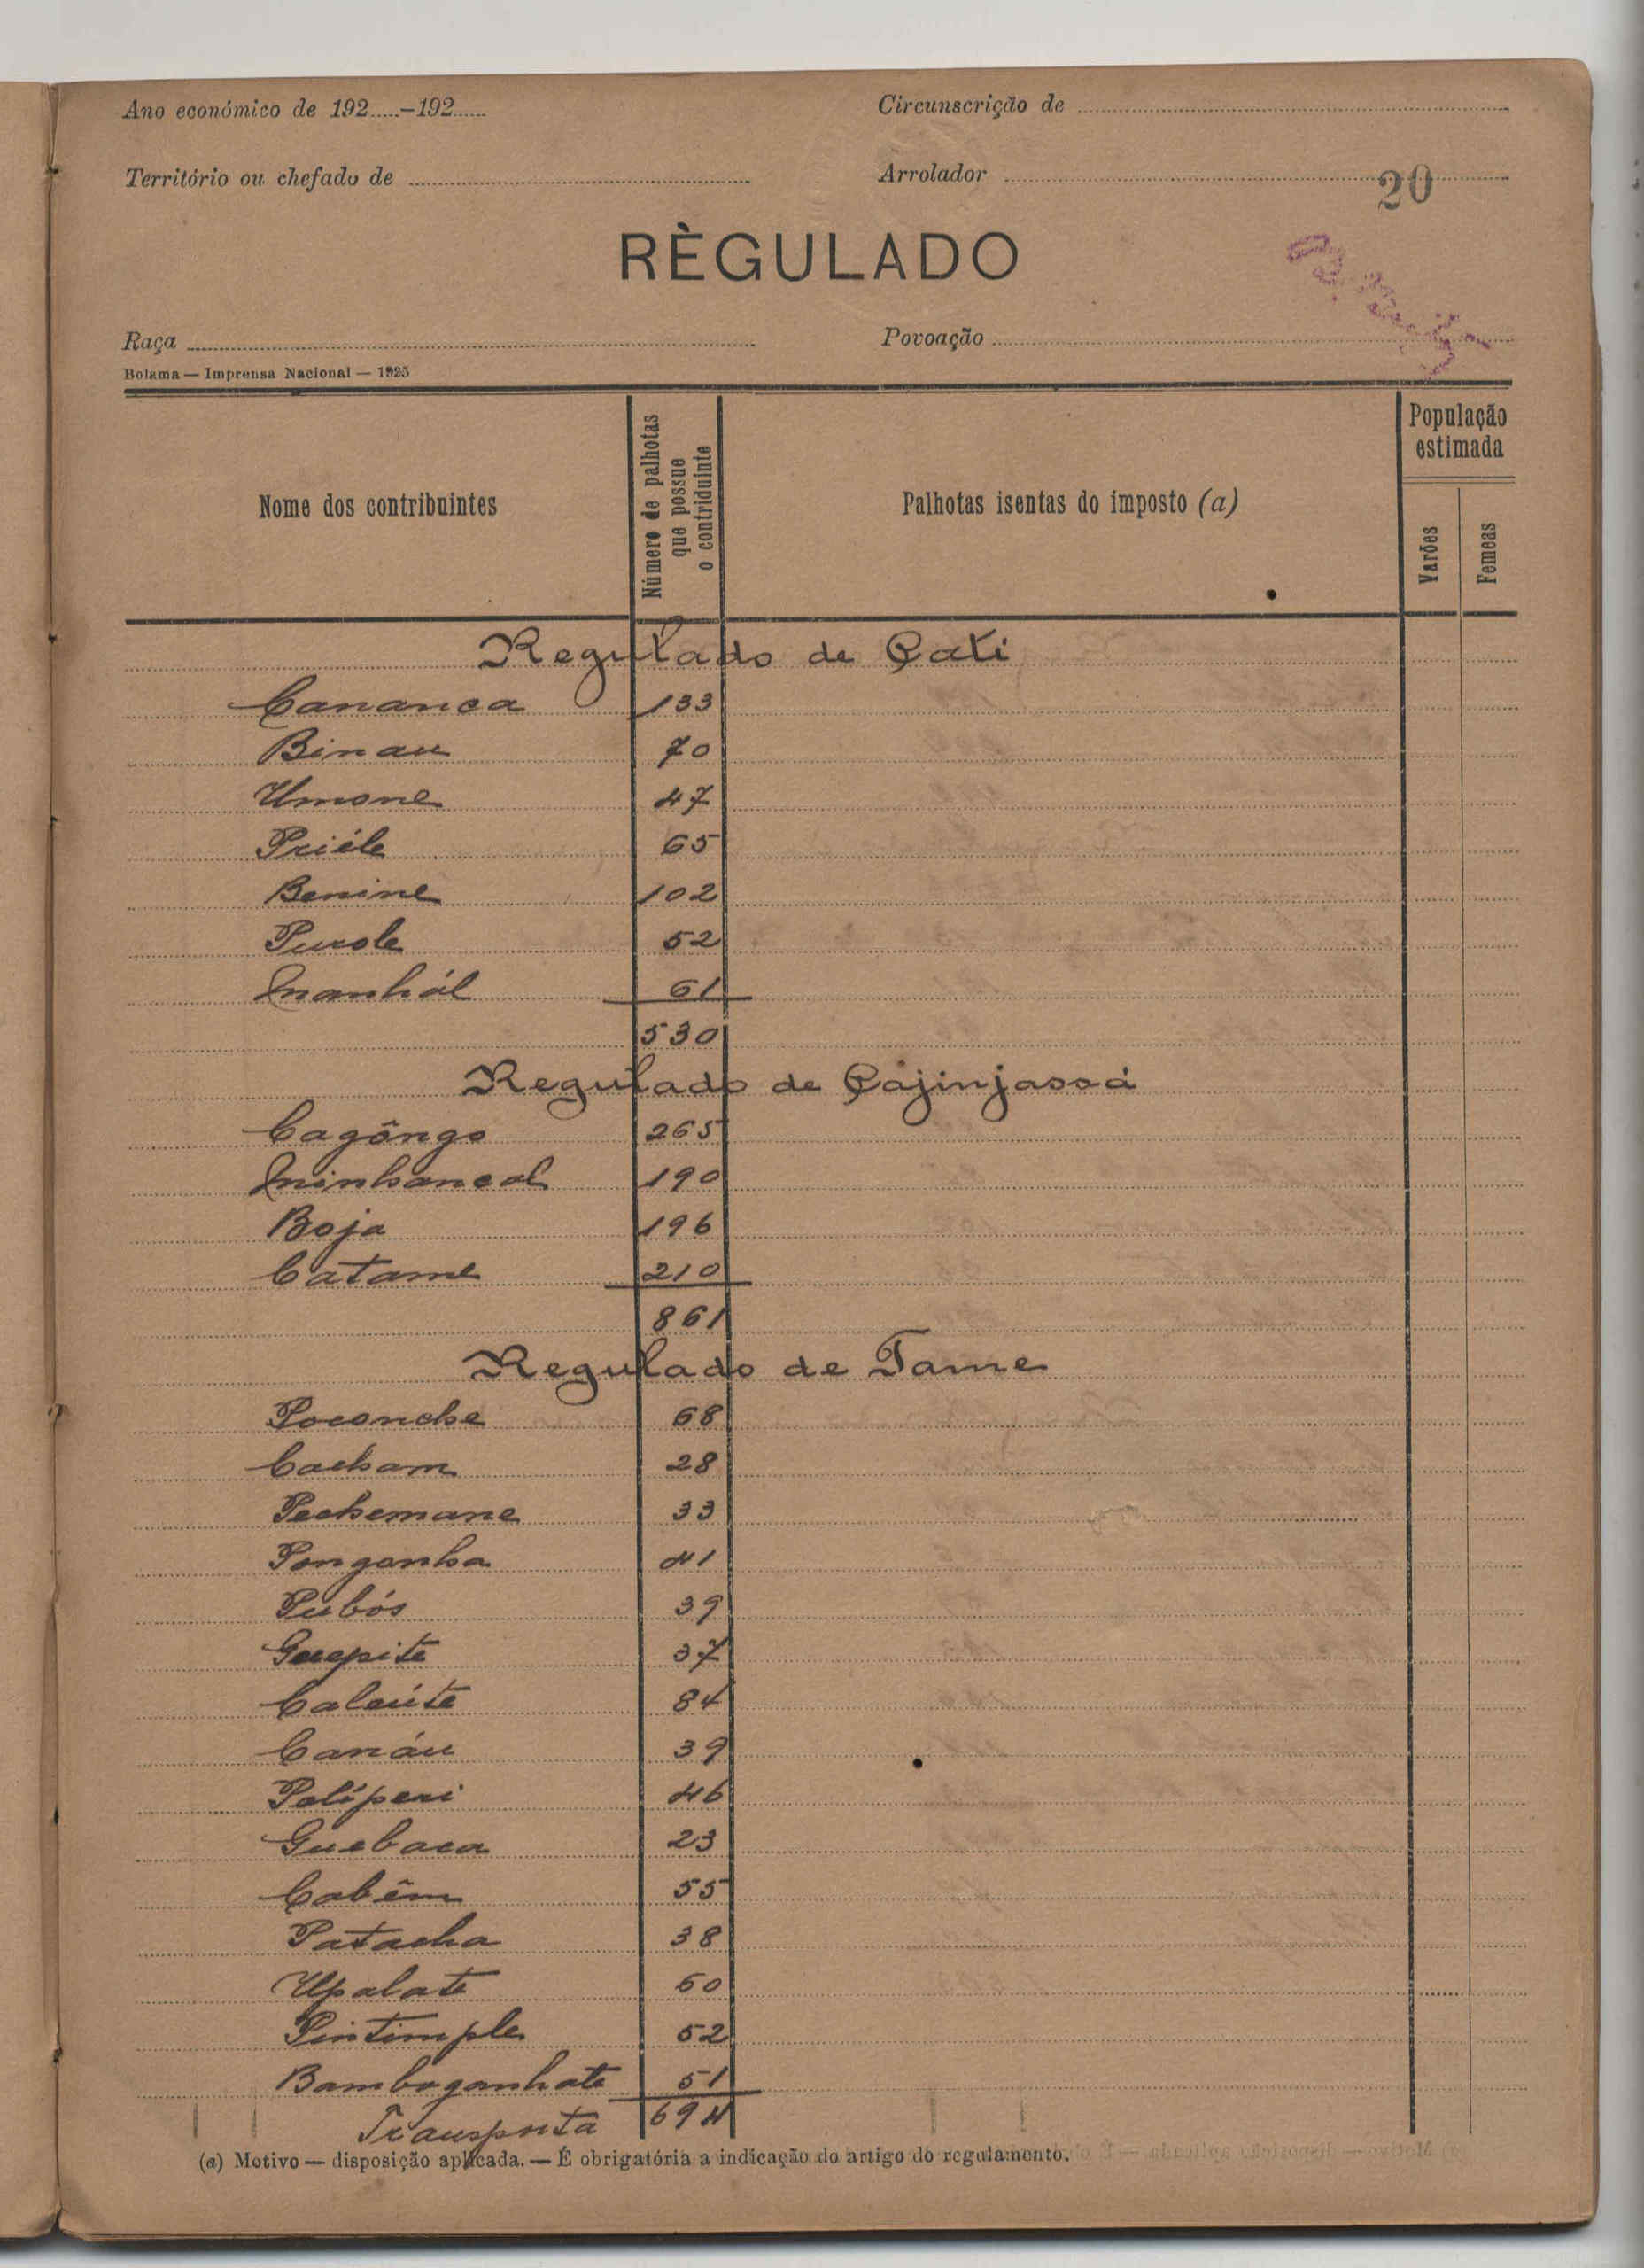 Ano económico de 192.....-192.....
Circunscrição de
Território ou chefado de
Arrolador
20
RÈGULADO
Raça
Povoação
Bolama — Imprensa Nacional — 1925
Nome dos contribuintes
Número de palhotas que possue o contriduinte
Palhotas isentas do imposto (a)
População estimada
Varões
Femeas
Regulado de Cati
Cananca 133
Binau 70
Umone 47
Priéle 65
Benine 102
Purole 52
Inanhál 61
530
Regulado de Cajinjassá
Cagôngo 265
Ininhancal 190
Boja 196
Catame 210
861
Regulado de Tame
Poconche 68
Cacham 28
Pechemane 33
Ponganha 41
Pubós 39
Guepite 37
Caleúte 84
Canáu 39
Patíperi 46
Guebaca 23
Cabêm 55
Patacha 38
Upalate 60
Pintimple 52
Bamboganhate 51
Transporta 694
(a) Motivo — disposição aplicada. — É obrigatória a indicação do artigo do regulamento.